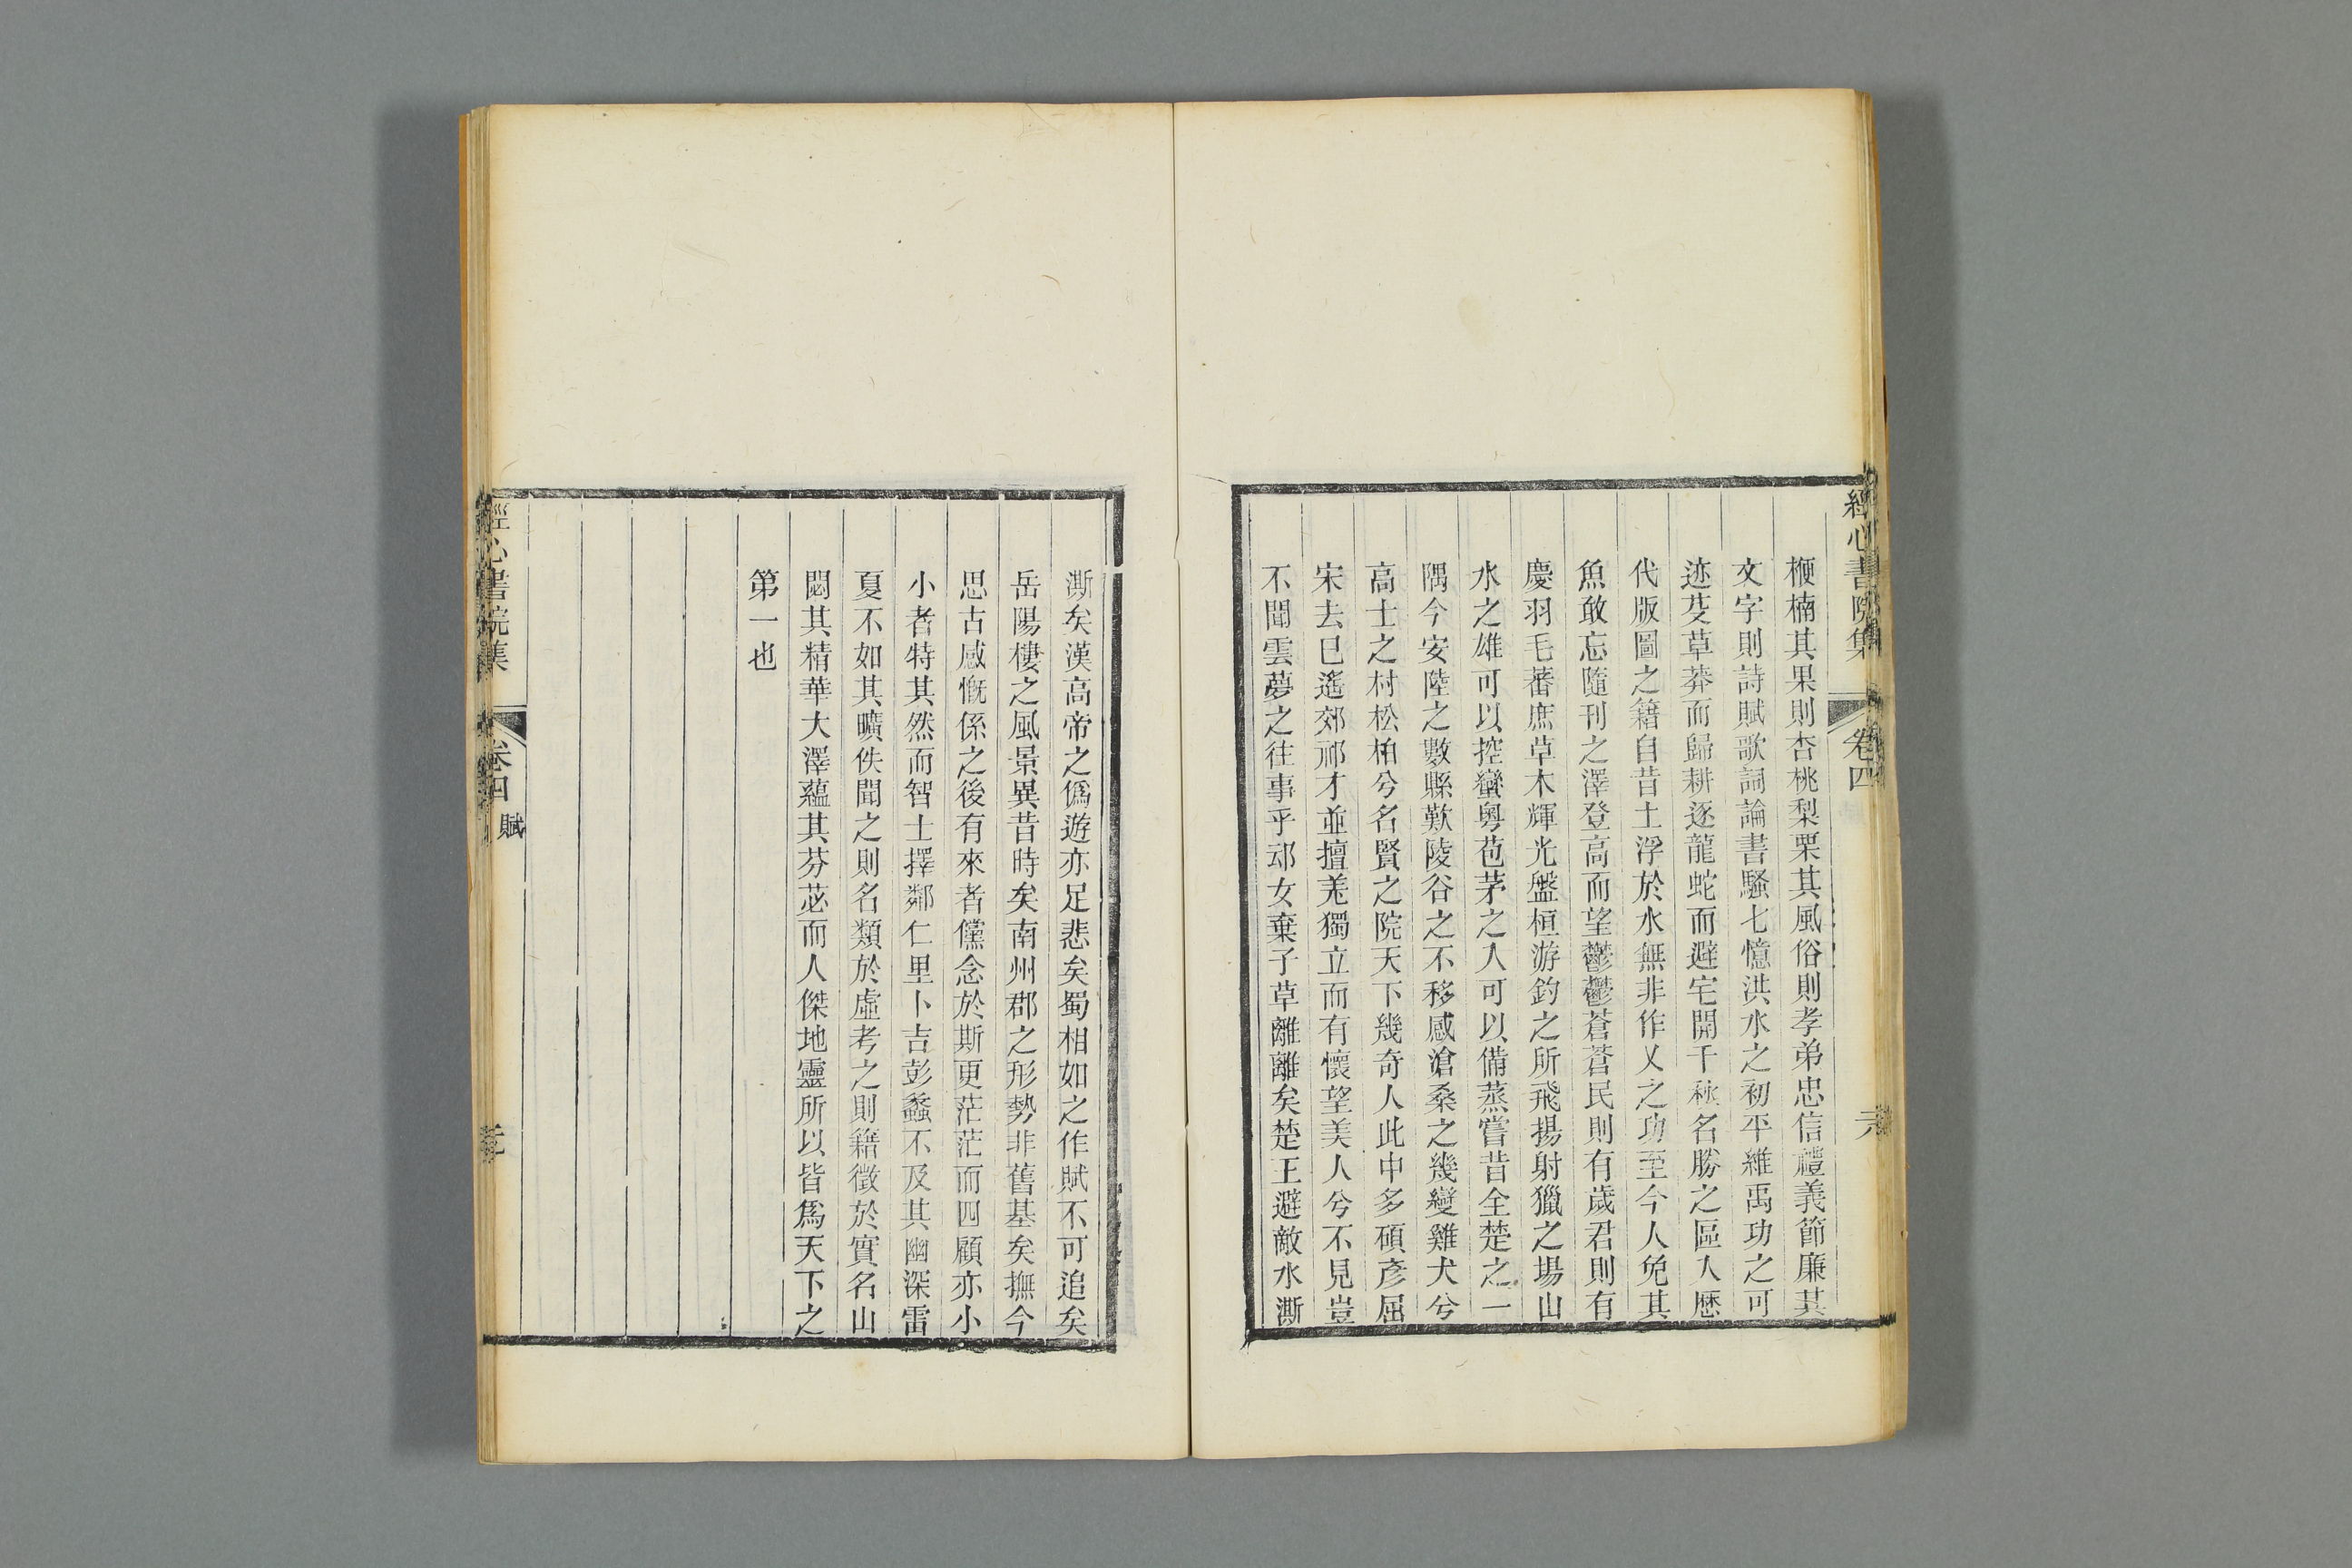 經心書院集
卷四
楩楠其果則杏桃梨栗其風俗則孝弟忠信禮義節廉其
文字則詩賦歌詞論書騷七憶洪水之初平維禹功之可
迹芟草莽而歸耕逐龍蛇而避宅開千秋名勝之區入歷
代版圖之籍自昔土浮於水無非作乂之功至今人免其
魚敢忘隨刊之澤登高而望鬱鬱蒼蒼民則有歲君則有
慶羽毛蕃庶草木輝光盤桓游釣之所飛揚射獵之場山
水之雄可以控蠻粵苞茅之入可以備蒸嘗昔全楚之一
隅今安陸之數縣歎陵谷之不移感滄桑之幾變雞犬兮
高士之村松柏兮名賢之院天下幾奇人此中多碩彥屈
宋去巳遙郊祁才並擅羌獨立而有懷望美人兮不見豈
不聞雲夢之往事乎䢵女棄子草離離矣楚王避敵水澌
澌矣漢高帝之僞遊亦足悲矣蜀相如之作賦不可追矣
岳陽樓之風景異昔時矣南州郡之形勢非舊基矣撫今
思古感慨係之後有來者儻念於斯更茫茫而四顧亦小
小者特其然而智士擇鄰仁里卜吉彭蠡不及其幽深雷
夏不如其曠佚聞之則名類於虛考之則籍徵於實名山
閟其精華大澤蘊其芬苾而人傑地靈所以皆爲天下之
第一也
經心書院集
卷四 賦